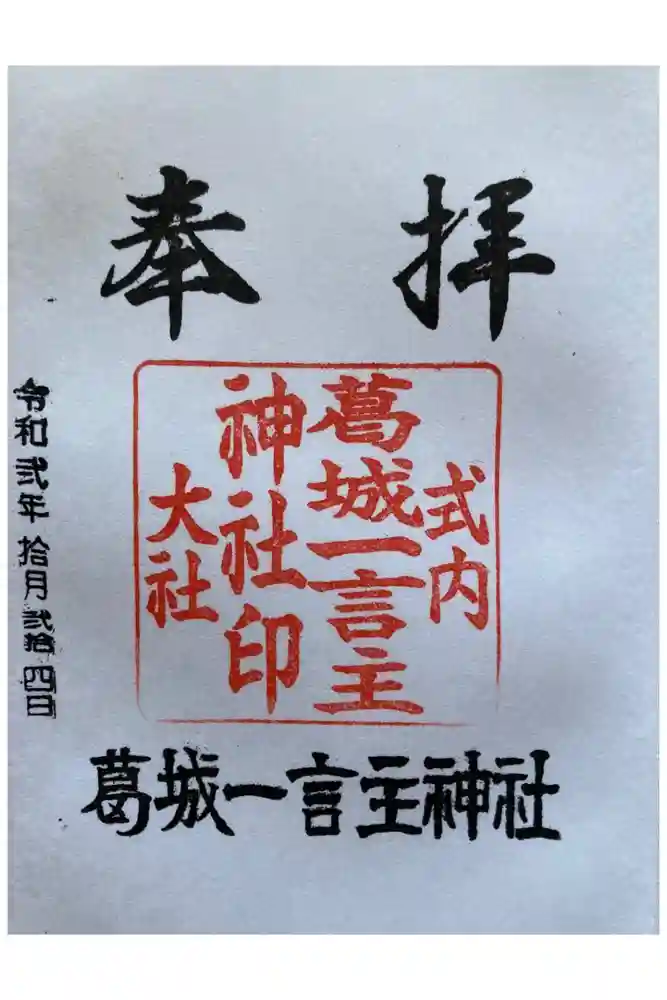 奉拝
式内
葛城一言主
神社印
大社
令和弐年拾月弐拾四日
葛城一言主神社